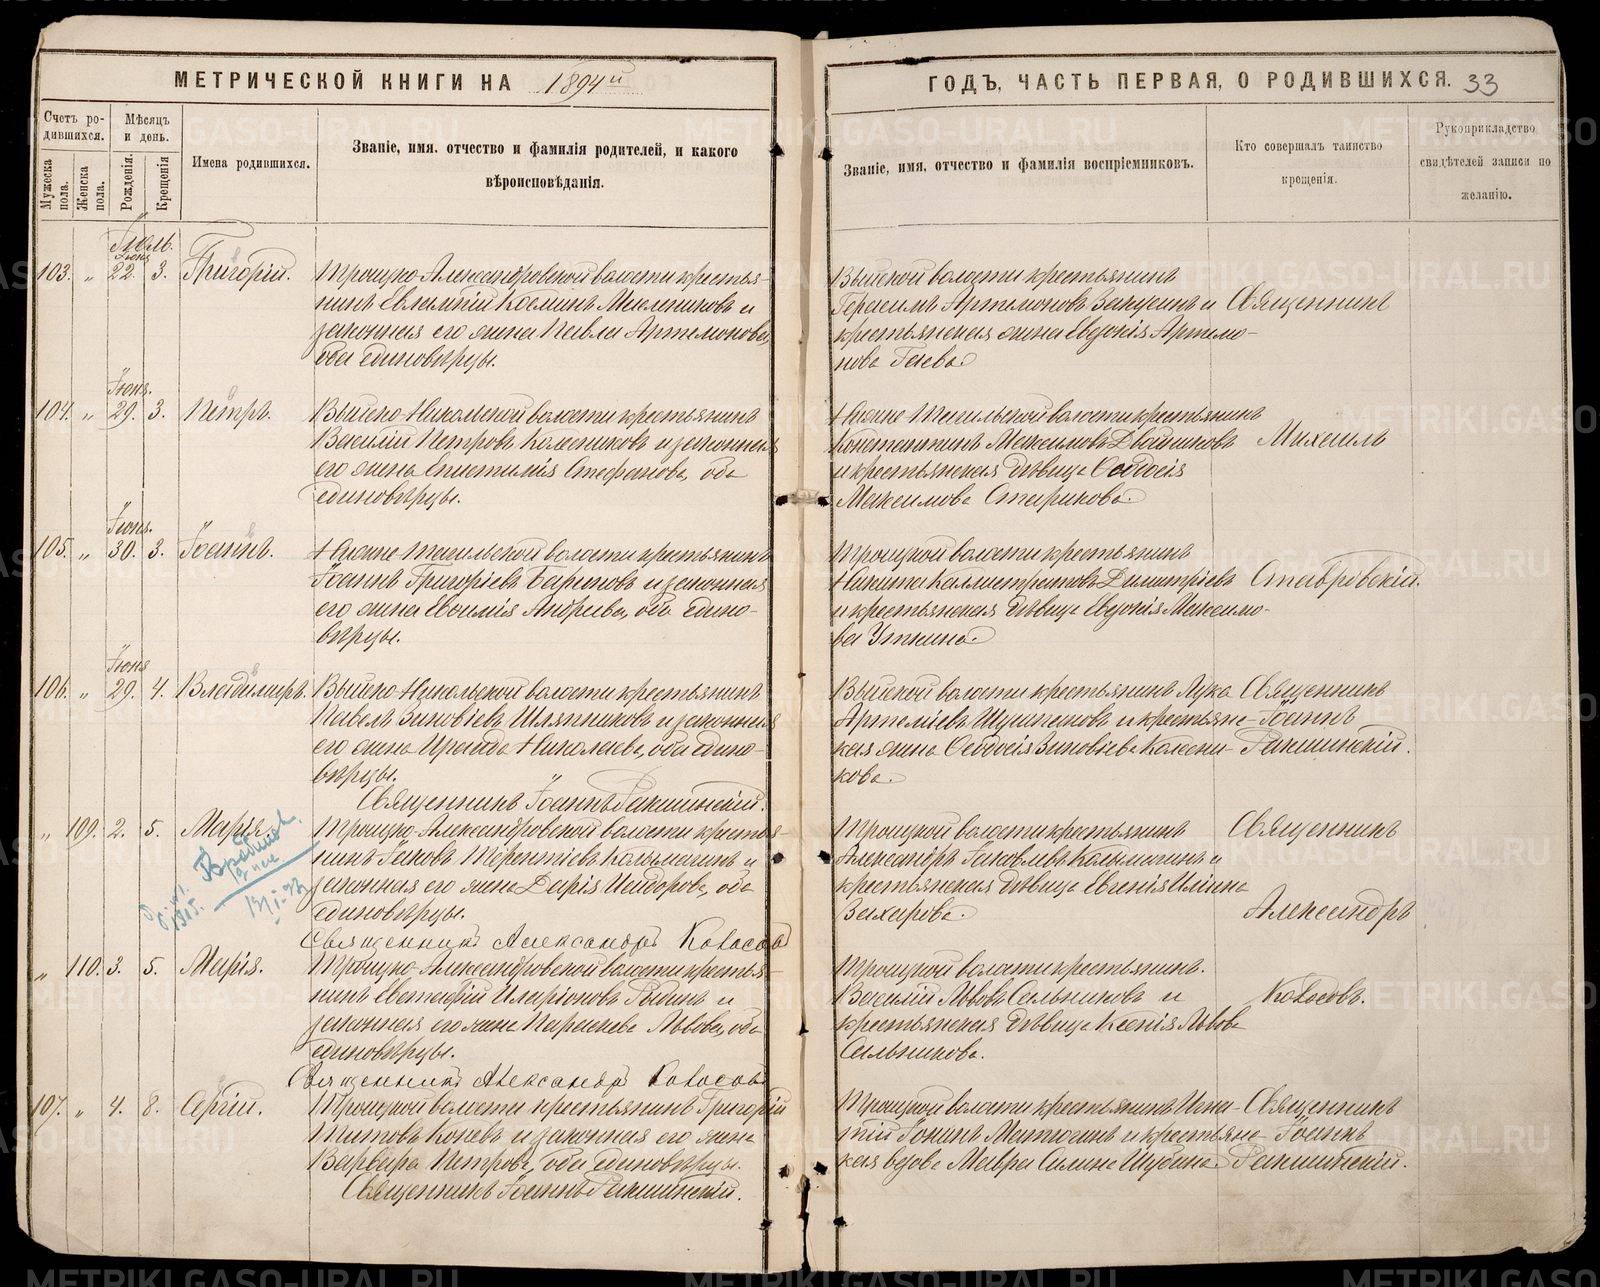 МЕТРИЧЕСКОЙ КНИГИ НА 1894й
ГОДЪ, ЧАСТЬ ПЕРВАЯ, О РОДИВШИХСЯ. 33
Счетъ родившихся.
Мужеска пола.
Женска пола.
Мѣсяцъ и день.
Рожденія.
Крещенія
Имена родившихся.
Званіе, имя, отчество и фамилія родителей, и какого
вѣроисповѣданія.
Званіе, имя, отчество и фамилія воспріемниковъ.
Кто совершалъ таинство
крещенія.
Рукоприкладство
свидѣтелей записи по
желанію.
Іюль.
Іюня
103. „ 22. 3. Григорій.
Троицко-Александровской волости крестья-
нинъ Евлампій Косминъ Мельниковъ и
законная его жена Павла Артемонова,
оба единовѣрцы.
Выйской волости крестьянинъ
Герасимъ Артемоновъ и
крестьянская жена Евдокія Артемо-
нова Гаева.
Священникъ
Іюня.
104. „ 29. 3. Петръ.
Выйско-Никольской волости крестьянинъ
Василій Петровъ Колесниковъ и законная
его жена Стефанова, оба
единовѣрцы.
Нижне-Тагильской волости крестьянинъ
Константинъ Максимовъ Двойниковъ
и крестьянская дѣвица Ѳеодосія
Максимова Старикова.
Михаилъ
Іюня.
105. „ 30. 3. Іоаннъ.
Нижне-Тагильской волости крестьянинъ
Іоаннъ Григоріевъ Барановъ и законная
его жена Андреева, оба едино-
вѣрцы.
Троицкой волости крестьянинъ
Никита Каллистратовъ Димитріевъ
и крестьянская дѣвица Евдокія Максимо-
ва Уткина.
Ставровскій.
Іюня
106. „ 29. 4. Владиміръ.
Выйско-Никольской волости крестьянинъ
Павелъ Зиновіевъ Шляпниковъ и законная
его жена Ираида Николаева, оба едино-
вѣрцы.
Священникъ Іоаннъ Ракшинскій.
Выйской волости крестьянинъ Лука
Артеміевъ и крестьянс-
кая жена Ѳеодосія Зиновіева Колесни-
кова.
Священникъ
Іоаннъ
Ракшинскій.
„ 109. 2. 5. Марія.
Троицко-Александровской волости крестья-
нинъ Іаковъ Терентіевъ Колмагинъ и
законная его жена Дарія Исидорова, оба
единовѣрцы.
Священникъ Александръ Колосовъ
Троицкой волости крестьянинъ
Александръ Іаковлевъ Колмагинъ и
крестьянская дѣвица Евгенія Ильина
Захарова.
Священникъ
Александръ
„ 110. 3. 5. Марія.
Троицко-Александровской волости крестья-
нинъ Евстафій Иларіоновъ и
законная его жена Параскева Львова, оба
единовѣрцы.
Священникъ Александръ Колосовъ
Троицкой волости крестьянинъ.
Василій Львовъ Сальниковъ и
крестьянская дѣвица Ксенія Львова
Сальникова.
Колосовъ.
107. „ 4. 8. Сергій.
Троицкой волости крестьянинъ Григорій
Титовъ Коневъ и законная его жена
Варвара Петрова, оба единовѣрцы.
Священникъ Іоаннъ Ракшинскій.
Троицкой волости крестьянинъ Игна-
тій Іонинъ Матюгинъ и крестьянс-
кая вдова Мавра Шубина.
Священникъ
Іоаннъ
Ракшинскій.
METRIKI.GASO-URAL.RU